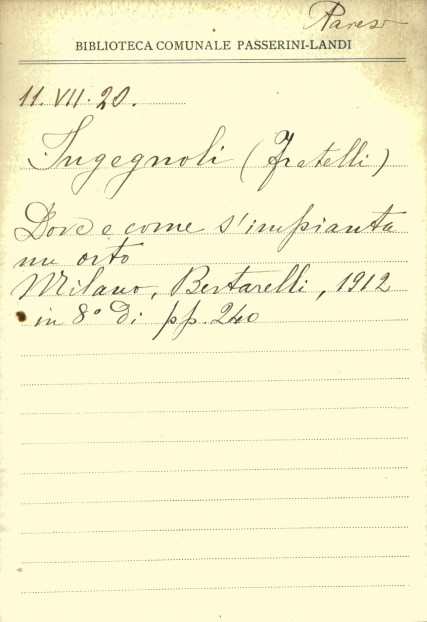 BIBLIOTECA COMUNALE PASSERINI-LANDI
11. VII. 20.
Ingegnoli (Fratelli)
Dove e come s'impianta
un orto
Milano, Bertarelli, 1912
in 8° di pp. 240